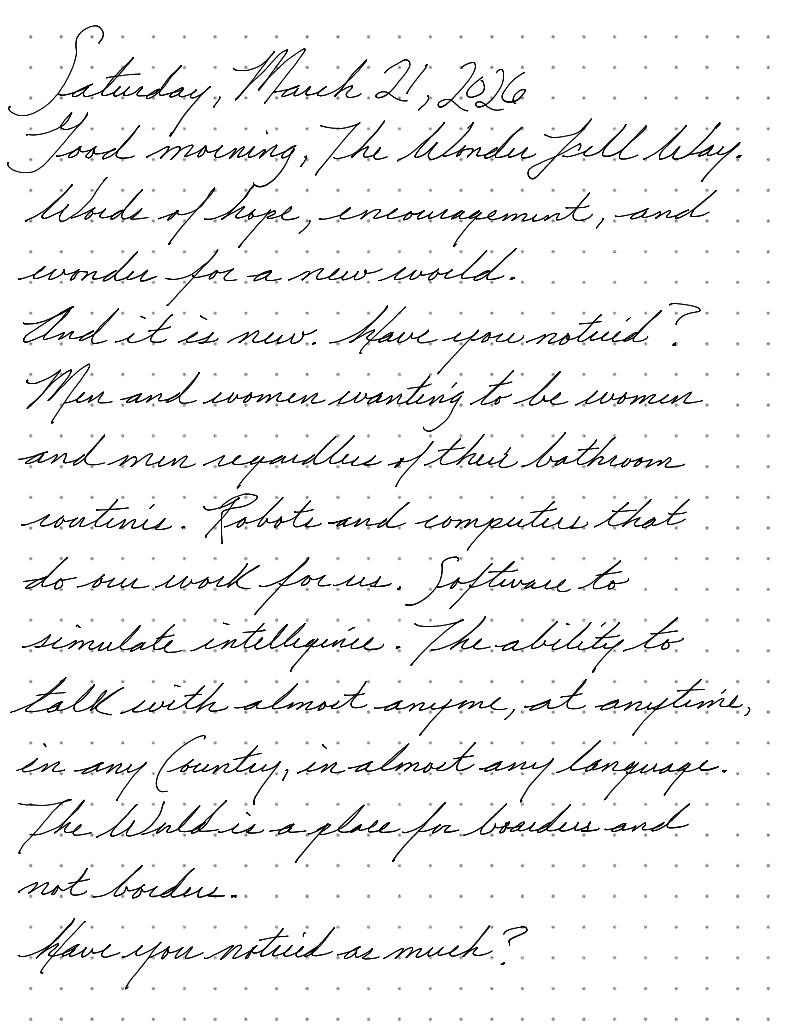 Saturday, March 21, 2026
Good morning, The Wonder Full Way.
Words of hope, encouragement, and
wonder for a new world.
And it is new. Have you noticed?
Men and women wanting to be women
and men regardless of their bathroom
routines. Robots and computers that
do our work for us. Software to
simulate intelligence. The ability to
talk with almost anyone, at anytime,
in any Country, in almost any language.
The World is a place for boarders and
not borders.
Have you noticed as much?